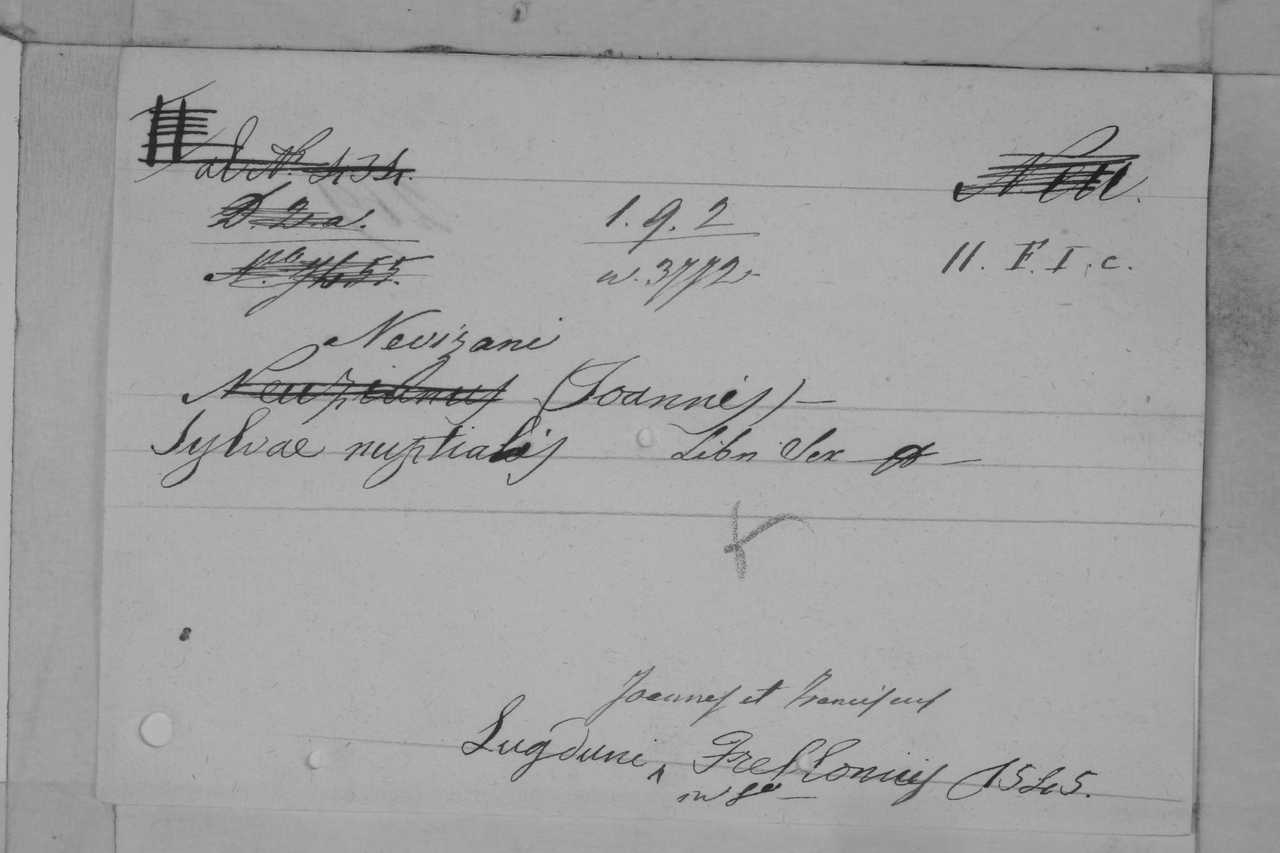 1. 9. 2
11. F. I. c.
n. 3772
Nevizani
(Joannes) —
Sylvae nuptialis Libri Sex —
Joannes et Franciscus
Lugduni, Frellonius 1545.
in 8o —